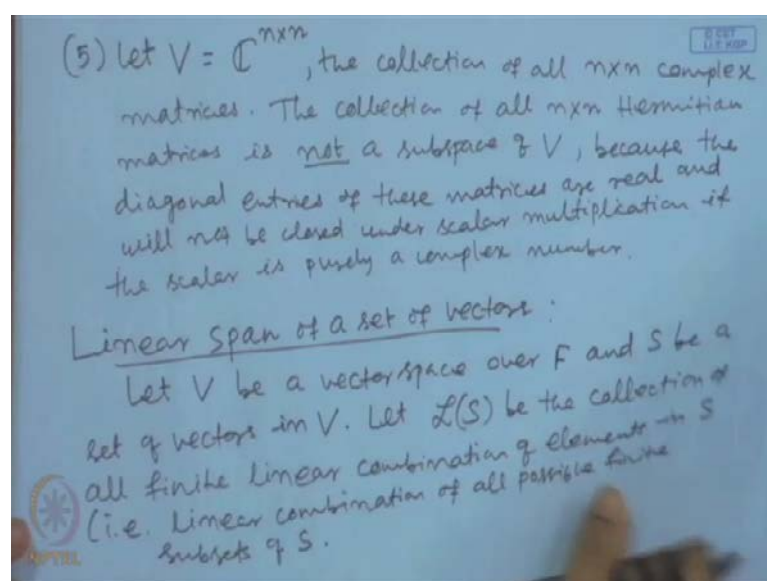 (5) Let V = ℂ^{n×n}, the collection of all n×n complex
matrices. The collection of all n×n Hermitian
matrices is not a subspace of V, because the
diagonal entries of these matrices are real and
will not be closed under scalar multiplication if
the scalar is purely a complex number.
Linear span of a set of vectors:
Let V be a vector space over F and S be a
set of vectors in V. Let ℒ(S) be the collection of
all finite linear combination of elements in S
(i.e. Linear combination of all possible finite
subsets of S.